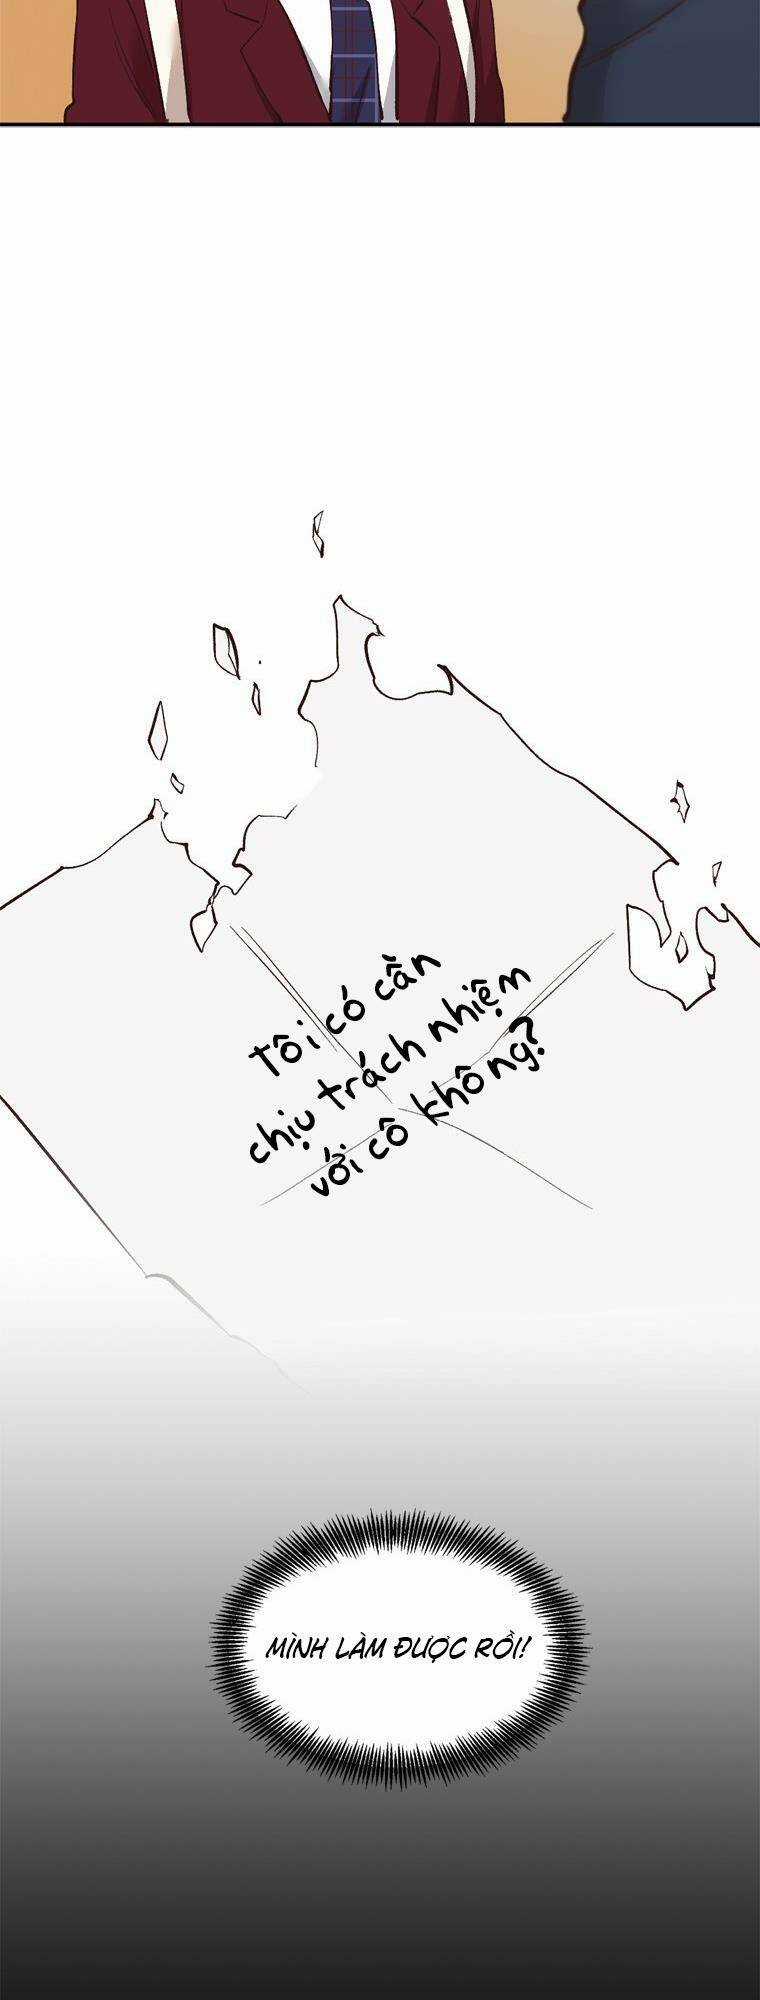 Tôi có cần
chịu trách nhiệm
với cô không?
MÌNH LÀM ĐƯỢC RỒI!